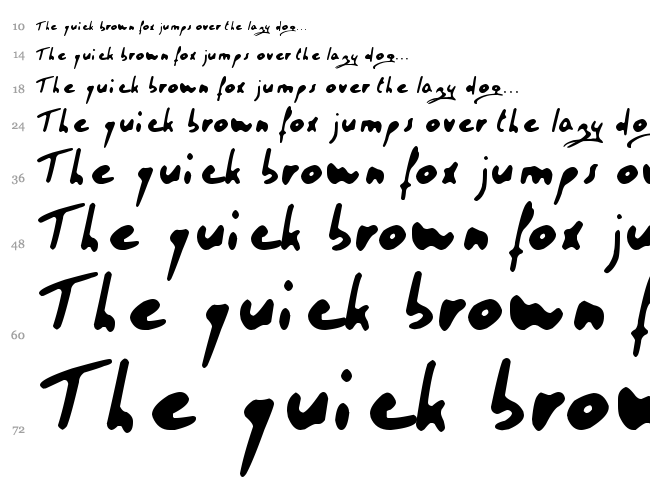 10 The quick brown fox jumps over the lazy dog...
14 The quick brown fox jumps over the lazy dog...
18 The quick brown fox jumps over the lazy dog...
24 The quick brown fox jumps over the lazy do
36 The quick brown fox jumps ov
48 The quick brown fox ju
60 The quick brown f
72 The quick brow